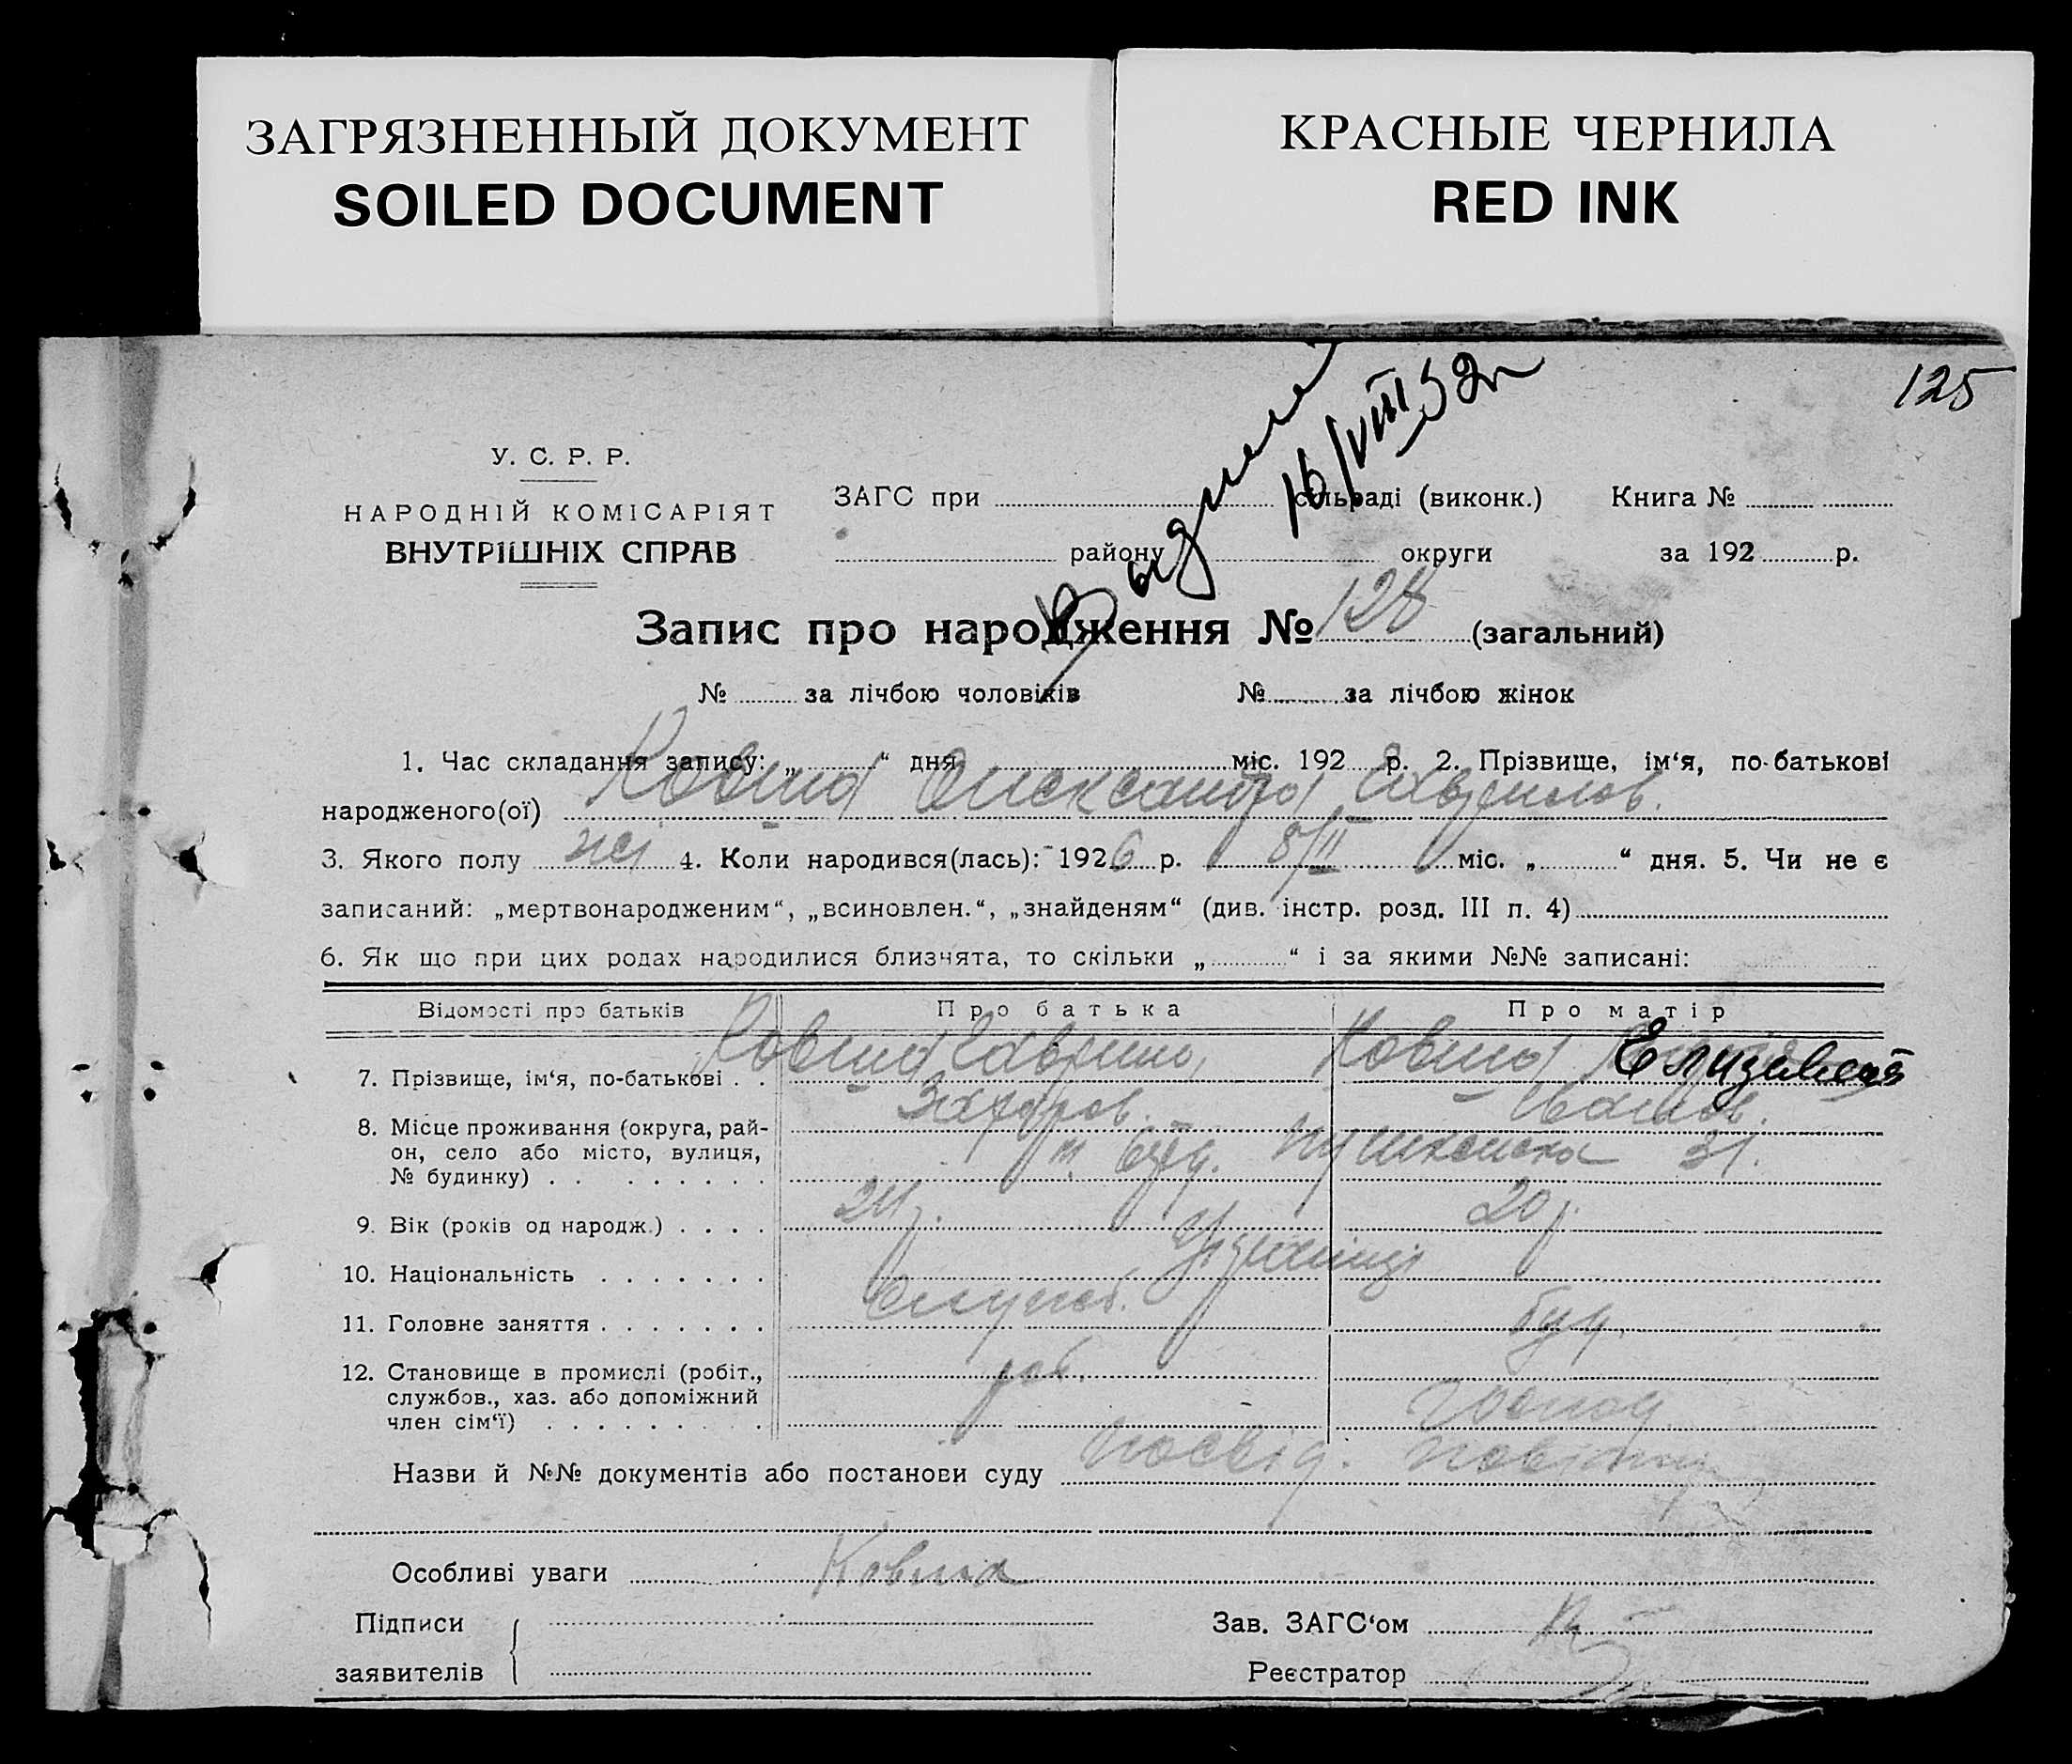 ЗАГРЯЗНЕННЫЙ ДОКУМЕНТ
SOILED DOCUMENT
КРАСНЫЕ ЧЕРНИЛА
RED INK
125
16/VIII 52г
У. С. Р. Р.
НАРОДНІЙ КОМІСАРІЯТ
ВНУТРІШНІХ СПРАВ
ЗАГС при сільраді (виконк.) Книга №
району округи за 192 р.
Запис про народження № 128 (загальний)
№ за лічбою чоловіків № за лічбою жінок
1. Час складання запису: „ “ дня міс. 192 р. 2. Прізвище, ім‘я, по-батькові
народженого(ої) Ковша Олександра Гаврилов.
3. Якого полу жі 4. Коли народився(лась): 1926 р. 8/II міс. „ “ дня. 5. Чи не є
записаний: „мертвонародженим“, „всиновлен.“, „знайденям“ (див. інстр. розд. III п. 4)
6. Як що при цих родах народилися близнята, то скільки „ “ і за якими №№ записані:
Відомості про батьків Про батька Про матір
7. Прізвище, ім‘я, по-батькові . . Ковша Гаврило Ковша Елизавета
Захаров. Іванов.
8. Місце проживання (округа, рай-
он, село або місто, вулиця,
№ будинку) . . . . . . . . . буд. Пушкінська 31.
9. Вік (років од народж.) . . . . 24 р. 20 р.
10. Національність . . . . . . . Українці
11. Головне заняття . . . . . . . Служб.
12. Становище в промислі (робіт.,
службов., хаз. або допоміжний
член сім‘ї) . . . . . . . . . роб. господ
Назви й №№ документів або постанови суду Посвід.
Особливі уваги Ковша
Підписи
заявителів
Зав. ЗАГС‘ом
Реєстратор